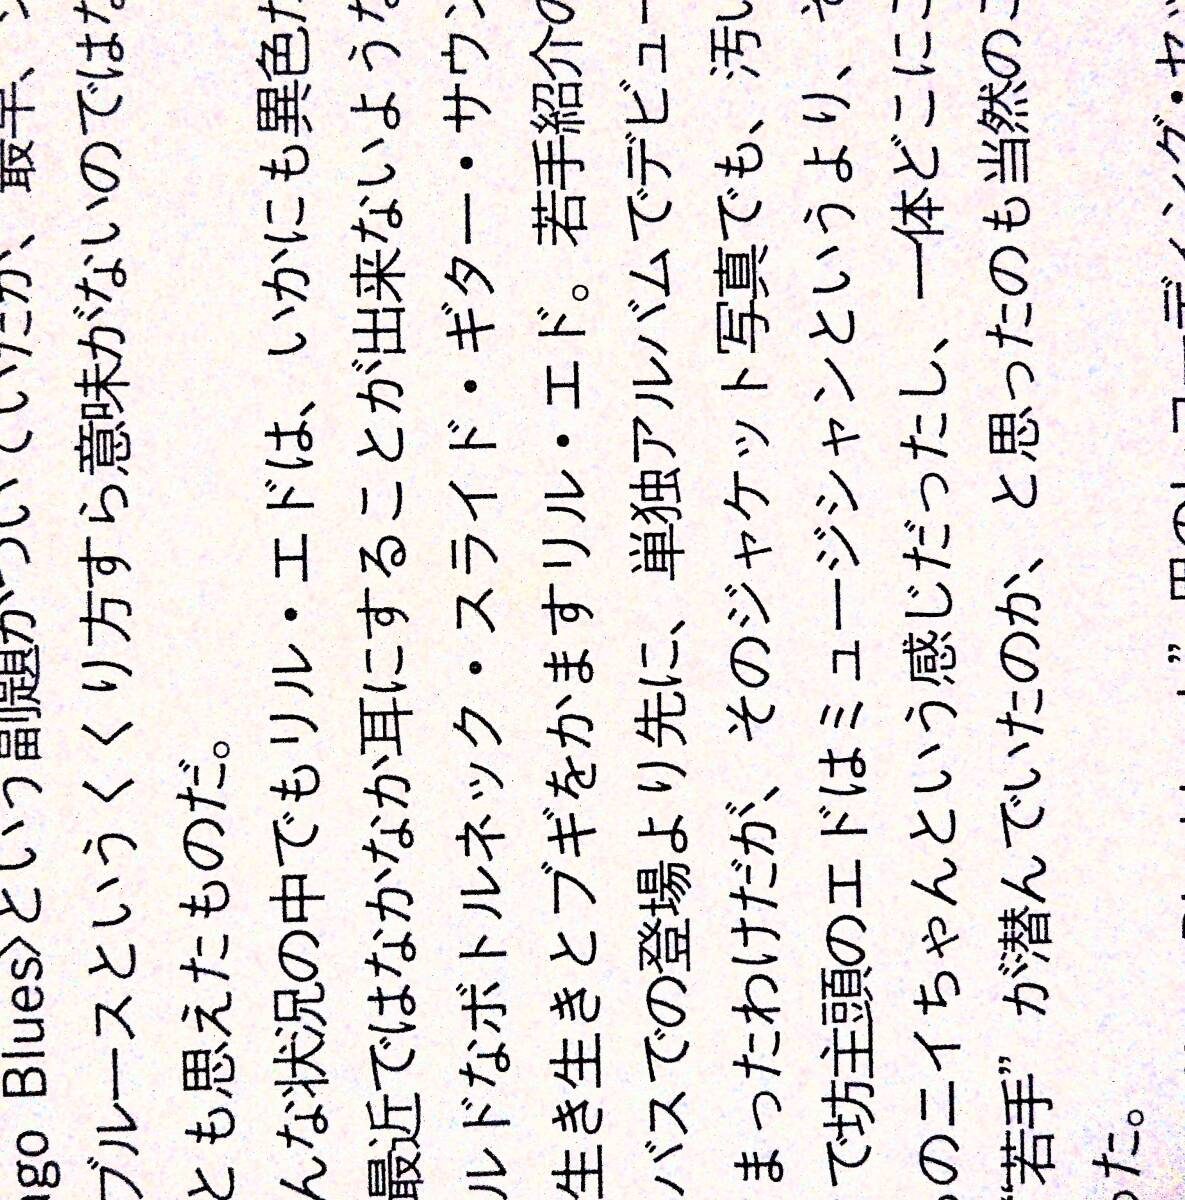 ago Blues>という副題がついていたが、最早、
ブルースというくくり方すら意味がないのではな
とも思えたものだ。
んな状況の中でもリル・エドは、いかにも異色だ
最近ではなかなか耳にすることが出来ないような
ルドなボトルネック・スライド・ギター・サウン
生き生きとブギをかますリル・エド。若手紹介の
バスでの登場より先に、単独アルバムでデビュー
まったわけだが、そのジャケット写真でも、汚い
で坊主頭のエドはミュージシャンというより、そ
のニイちゃんという感じだったし、一体どこにこ
“若手”が潜んでいたのか、と思ったのも当然のこ
った。